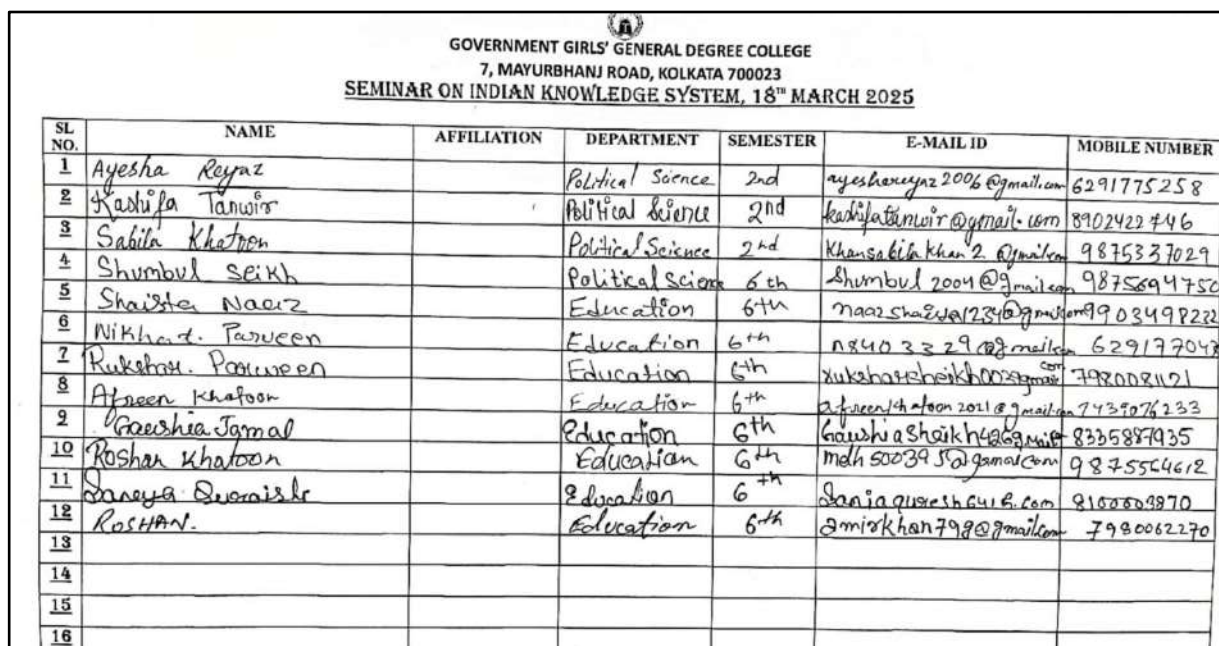 GOVERNMENT GIRLS' GENERAL DEGREE COLLEGE
7, MAYURBHANJ ROAD, KOLKATA 700023
SEMINAR ON INDIAN KNOWLEDGE SYSTEM, 18TH MARCH 2025
SL NO. NAME AFFILIATION DEPARTMENT SEMESTER E-MAIL ID MOBILE NUMBER
1 Ayesha Reyaz Political Science 2nd ayeshareyaz2006@gmail.com 6291775258
2 Kashifa Tanwir Political Science 2nd kashifatanwir@gmail.com 8902422746
3 Sabila Khatoon Political Science 2nd Khansabilakhan2@gmail.com 9875337029
4 Shumbul Seikh Political Science 6th Shumbul2004@gmail.com 9875694750
5 Shaista Naaz Education 6th 9903498232
6 Nikhat. Parveen Education 6th n8403329@gmail.com 629177043
7 Rukshar. Parween Education 6th 7980081121
8 Afreen Khatoon Education 6th afreenkhatoon2021@gmail.com 7439076233
9 Gaushia Jamal Education 6th 8335887935
10 Roshan Khatoon Education 6th 9875564612
11 Education 6th 8100003870
12 ROSHAN. Education 6th amirkhan798@gmail.com 7980062270
13
14
15
16